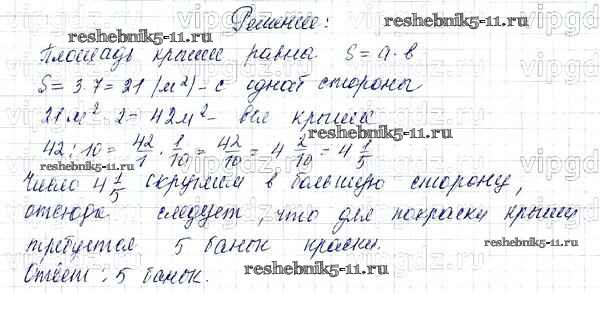 Решение:
reshebnik5-11.ru
reshebnik5-11.ru
Площадь крыши равна S = a · b
S = 3 · 7 = 21 (м²) – с одной стороны
21 м² · 2 = 42 м² – вся крыша
reshebnik5-11.ru
42 : 10 = 42/1 · 1/10 = 42/10 = 4 2/10 = 4 1/5
reshebnik5-11.ru
Число 4 1/5 округляем в большую сторону,
отсюда следует, что для покраски крыши
требуется 5 банок краски.
reshebnik5-11.ru
Ответ: 5 банок.
reshebnik5-11.ru